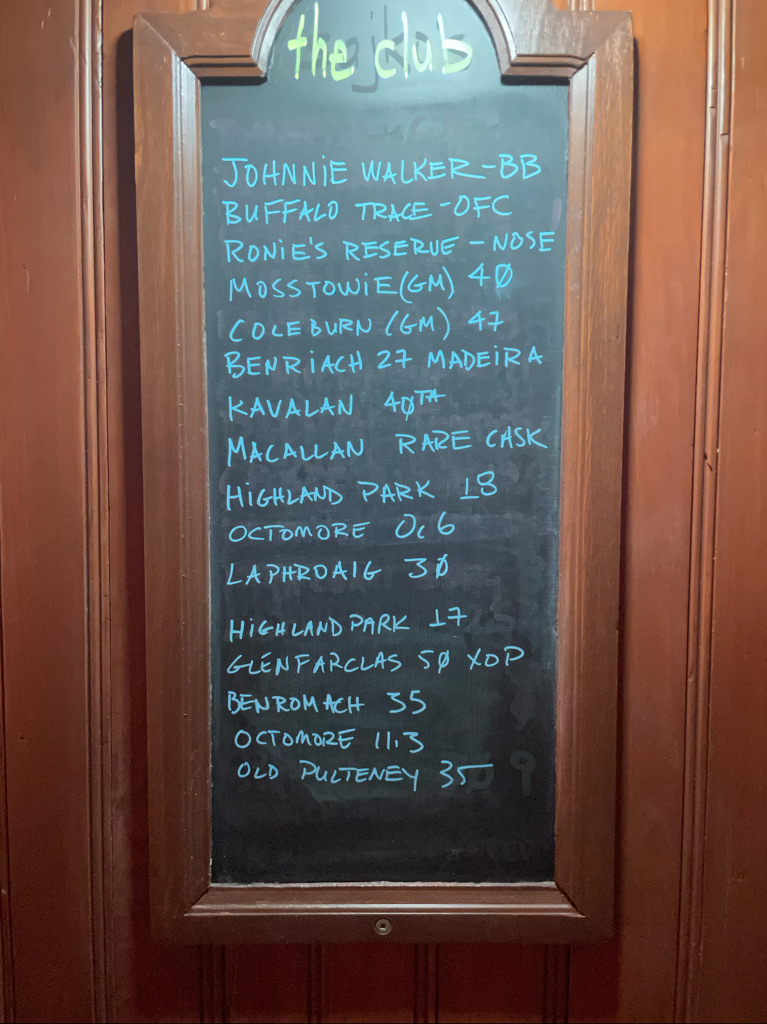 the club
JOHNNIE WALKER-BB
BUFFALO TRACE-OFC
RONIE'S RESERVE - NOSE
MOSSTOWIE (GM) 40
COLEBURN (GM) 47
BENRIACH 27 MADEIRA
KAVALAN 40TH
MACALLAN RARE CASK
HIGHLAND PARK 18
OCTOMORE Oc6
LAPHROAIG 30
HIGHLAND PARK 17
GLENFARCLAS 50 XOP
BENROMACH 35
OCTOMORE 11.3
OLD PULTENEY 35